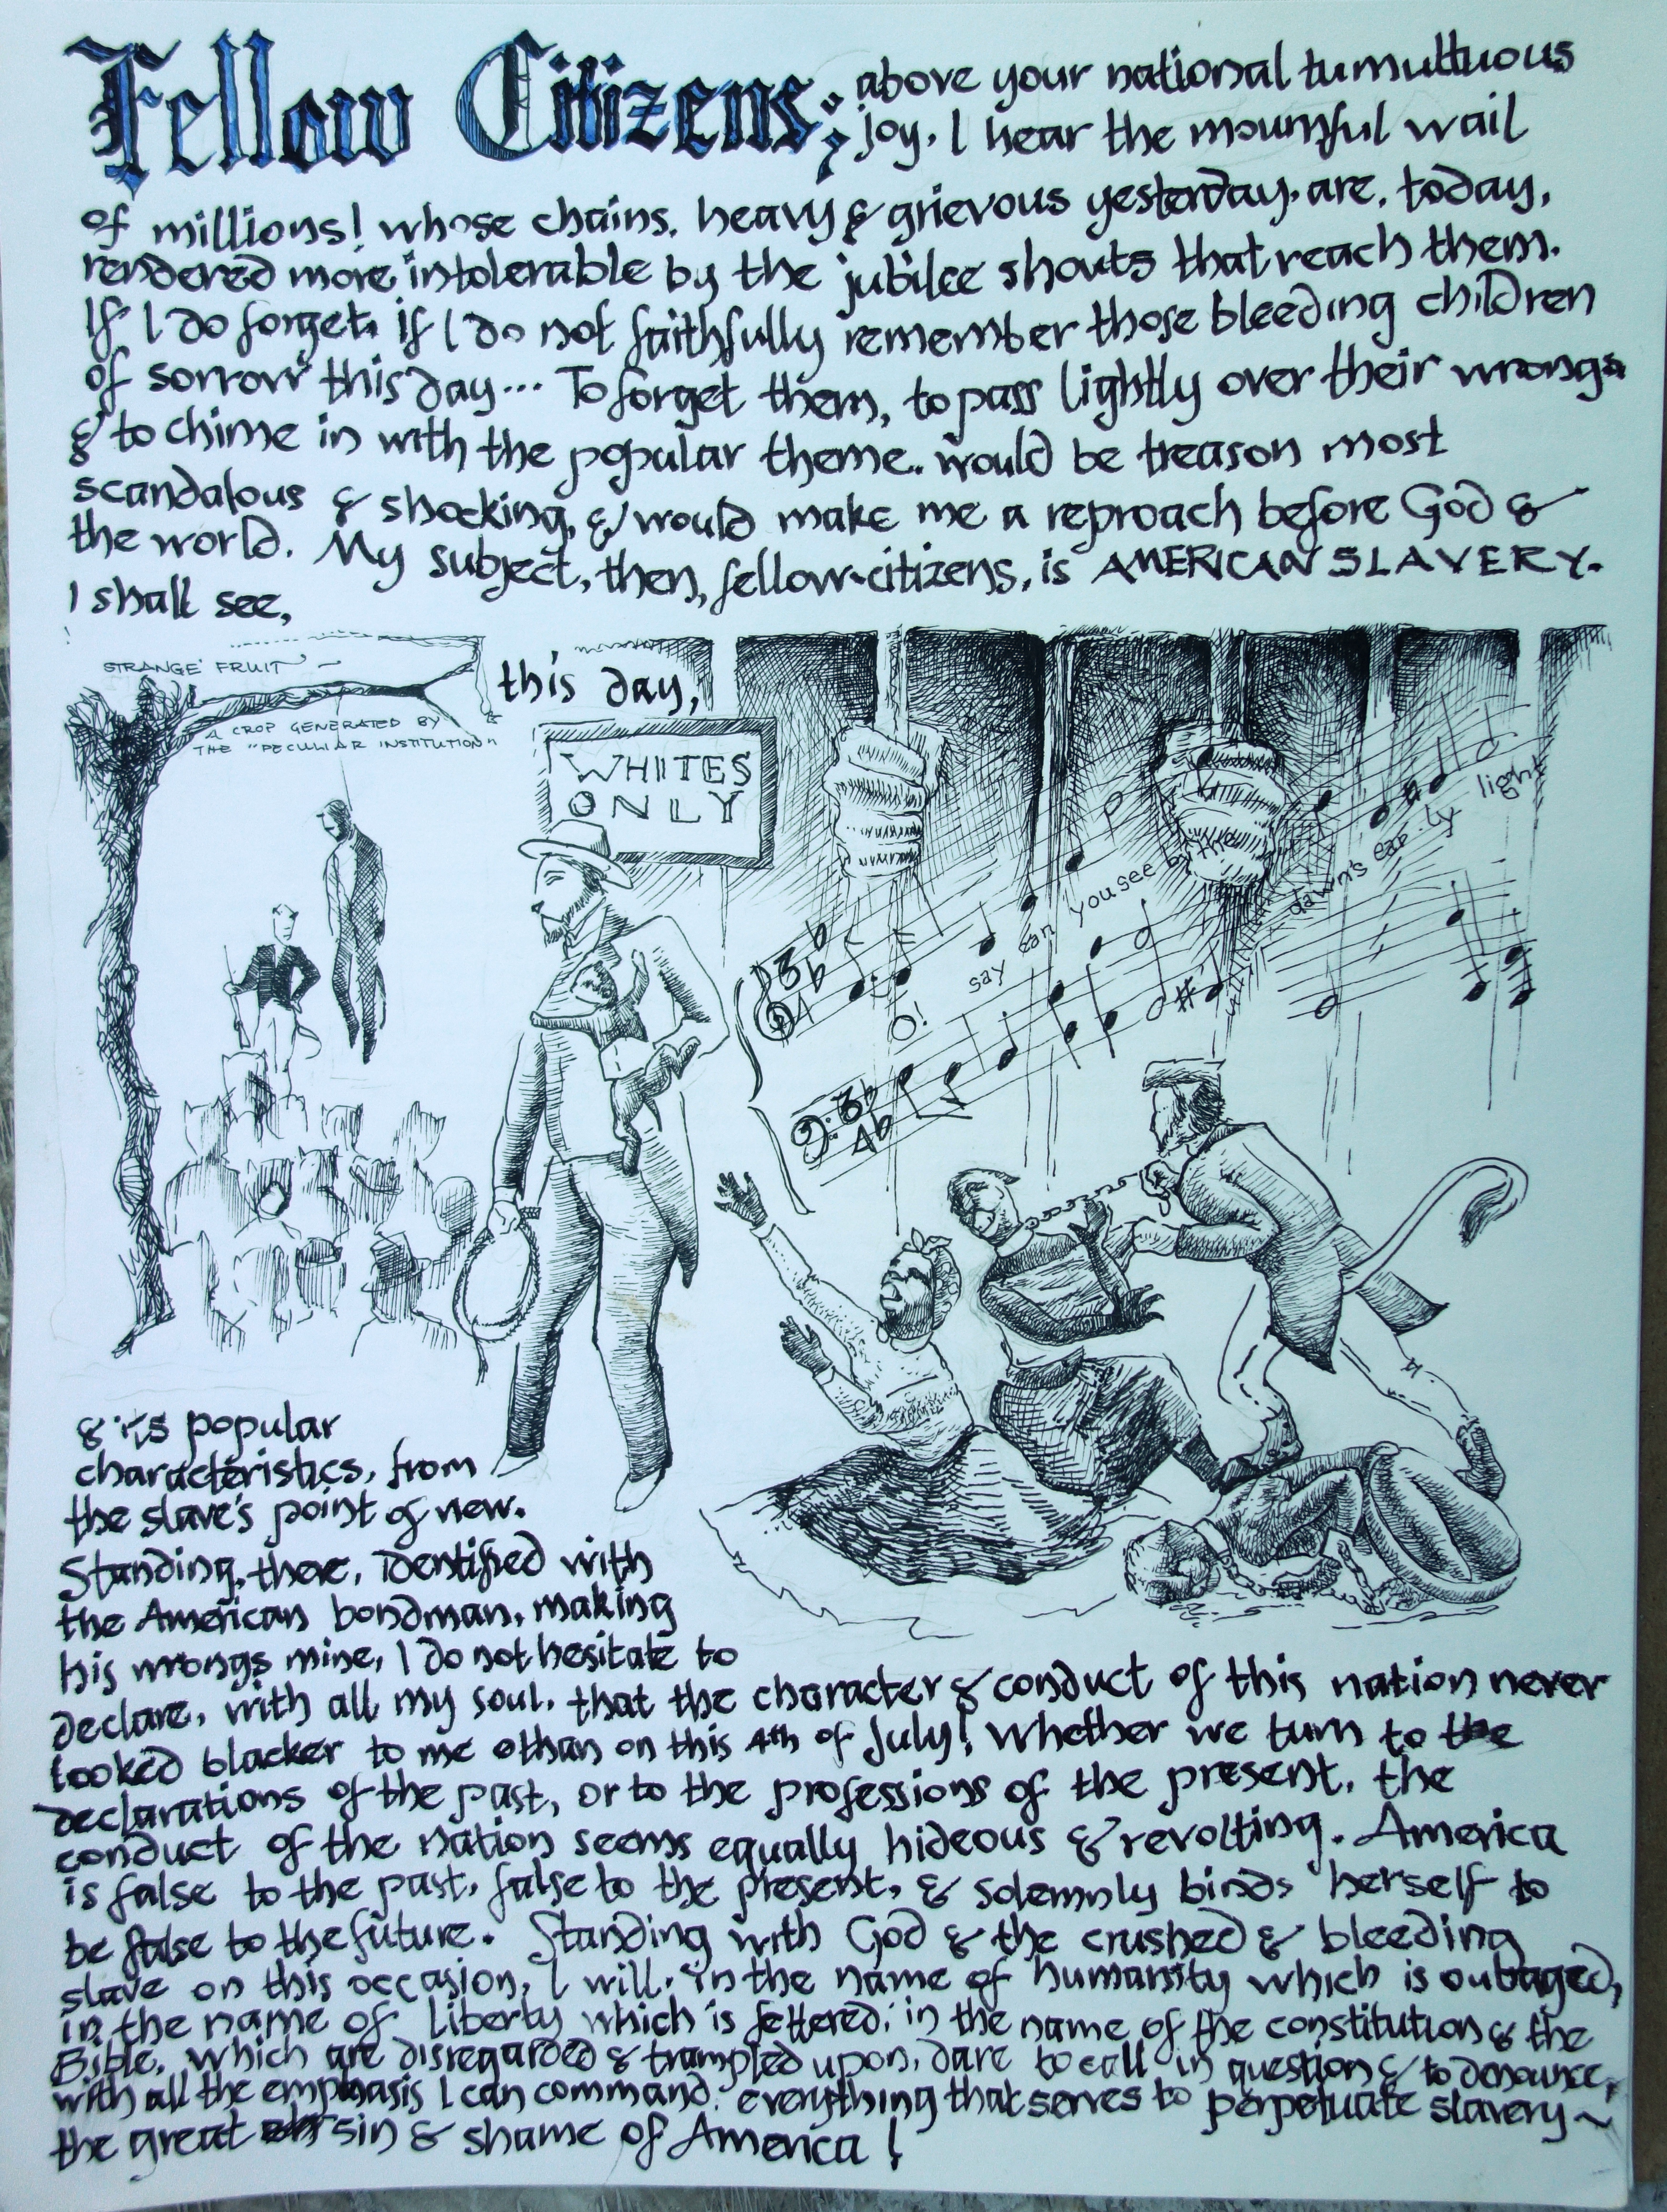 Fellow Citizens; above your national tumultuous
joy, I hear the mournful wail
of millions! whose chains, heavy & grievous yesterday, are, today,
rendered more intolerable by the jubilee shouts that reach them.
If I do forget, if I do not faithfully remember those bleeding children
of sorrow this day... To forget them, to pass lightly over their wrongs
& to chime in with the popular theme, would be treason most
scandalous & shocking, & would make me a reproach before God &
the world. My subject, then, fellow-citizens, is AMERICAN SLAVERY.
I shall see,
this day,
STRANGE FRUIT -
A CROP GENERATED BY
THE "PECULIAR INSTITUTION"
WHITES
ONLY
O! say can you see by the dawn's ear-ly light
& its popular
characteristics, from
the slave's point of view.
Standing, there, identified with
the American bondman, making
his wrongs mine, I do not hesitate to
declare, with all my soul, that the character & conduct of this nation never
looked blacker to me than on this 4th of July! Whether we turn to the
declarations of the past, or to the professions of the present, the
conduct of the nation seems equally hideous & revolting. America
is false to the past, false to the present, & solemnly binds herself to
be false to the future. Standing with God & the crushed & bleeding
slave on this occasion, I will, in the name of humanity which is outraged,
in the name of liberty which is fettered, in the name of the constitution & the
Bible, which are disregarded & trampled upon, dare to call in question & to denounce,
with all the emphasis I can command, everything that serves to perpetuate slavery ~
the great sin & shame of America!